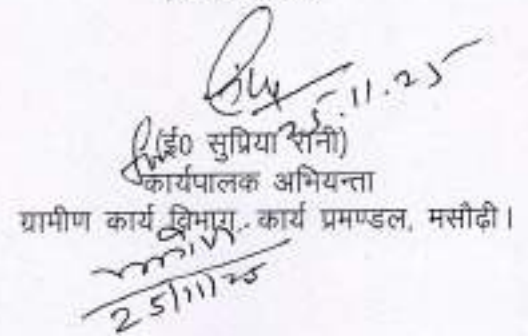 25.11.25
(ई0 सुप्रिया रानी)
कार्यपालक अभियन्ता
ग्रामीण कार्य विभाग, कार्य प्रमण्डल, मसौढ़ी।
25/11/25